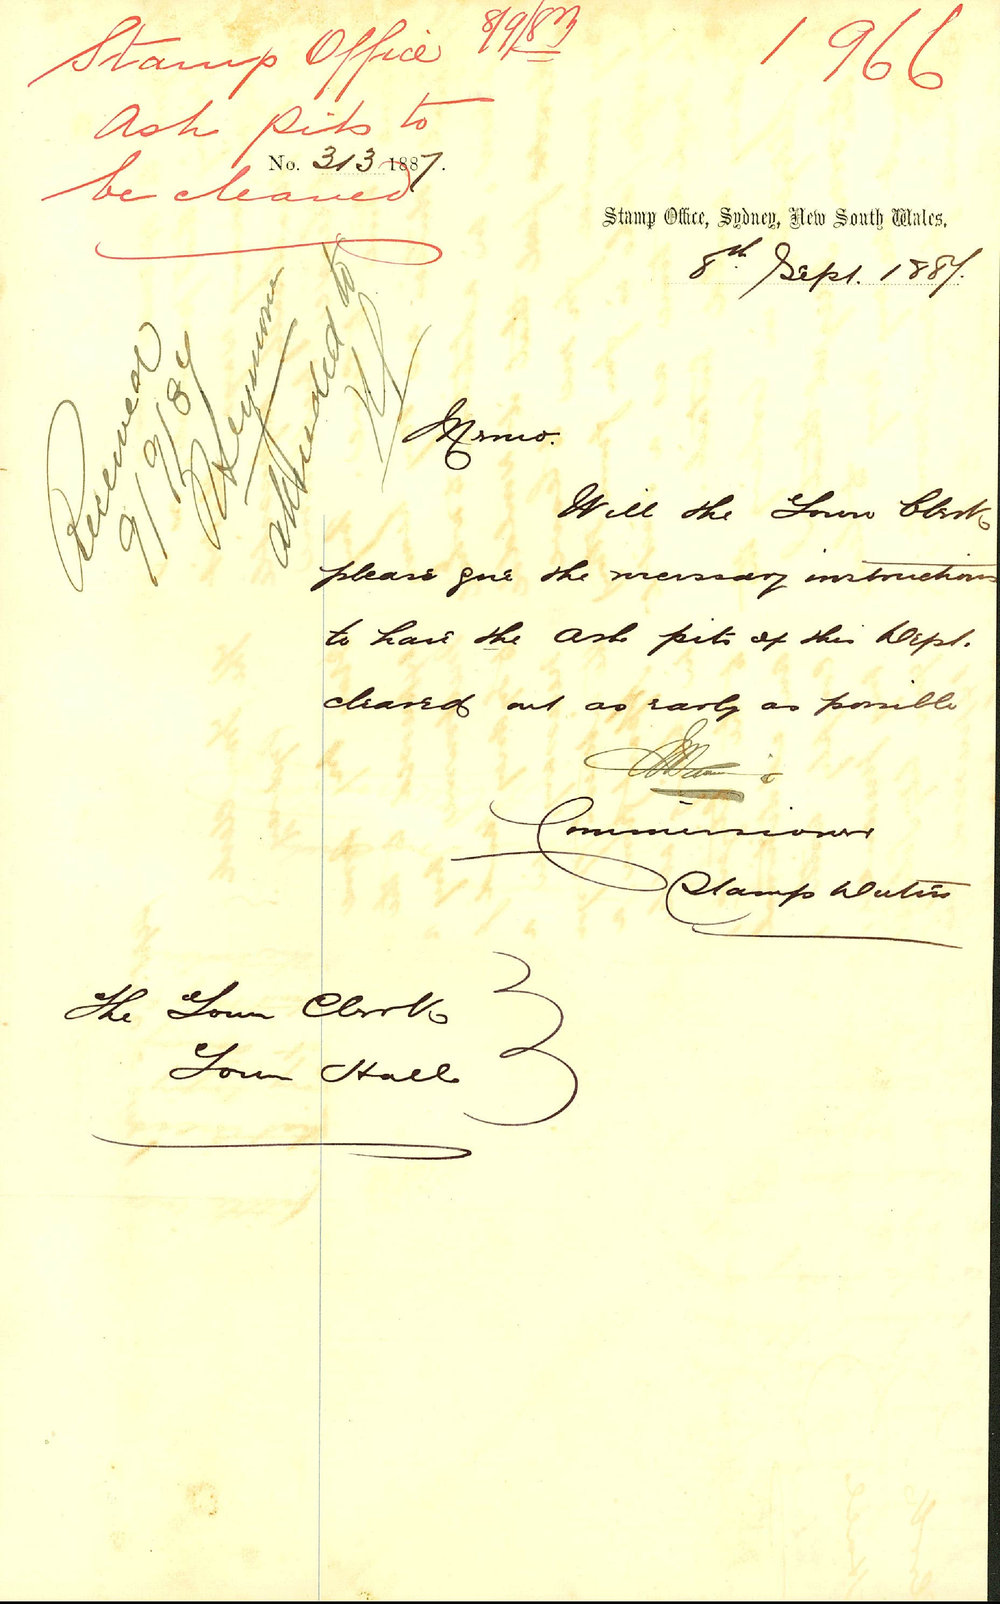 Stamp Office 8/9/87
1966
Ash pits to
No. 313 1887.
be cleaned
Stamp Office, Sydney, New South Wales,
8th Sept. 1887.
Received
9/9/87
Seymour
attended to
Memo.
Will the Town Clerk
please give the necessary instructions
to have the ash pits of this Dept.
cleared out as early as possible
Commissioner
Stamp Duties
The Town Clerk
Town Hall